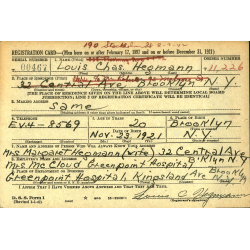 REGISTRATION CARD—(Men born on or after February 17, 1897 and on or before December 31, 1921)
SERIAL NUMBER 1. NAME (Print) ORDER NUMBER
Louis Chas. Hegmann 11,226
2. PLACE OF RESIDENCE (Print)
32 Central Ave. Brooklyn N.Y.
(THE PLACE OF RESIDENCE GIVEN ON THE LINE ABOVE WILL DETERMINE LOCAL BOARD JURISDICTION; LINE 2 OF REGISTRATION CERTIFICATE WILL BE IDENTICAL)
3. MAILING ADDRESS
Same
4. TELEPHONE 5. AGE IN YEARS 6. PLACE OF BIRTH
EV4-8569 20 Brooklyn
DATE OF BIRTH
Nov. 3 1921 N.Y.
7. NAME AND ADDRESS OF PERSON WHO WILL ALWAYS KNOW YOUR ADDRESS
Mrs Margaret Hegmann (wife) 32 Central Ave
8. EMPLOYER'S NAME AND ADDRESS B'klyn N.Y.
Mrs Mc Cloud Greenpoint Hospital
9. PLACE OF EMPLOYMENT OR BUSINESS
Greenpoint Hospital, Kingsland Ave Brooklyn N.Y.
I AFFIRM THAT I HAVE VERIFIED ABOVE ANSWERS AND THAT THEY ARE TRUE.
D. S. S. Form 1
Louis C. Hegmann